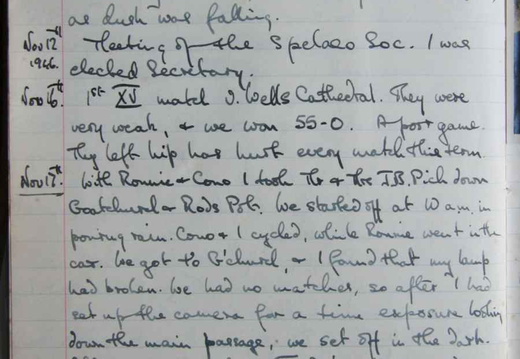 as dusk was falling.
Nov 12th Meeting of the Spelaeo Soc. I was
1946. elected Secretary.
Nov 16th. 1st XV match v. Wells Cathedral. They were
very weak, & we won 55-0. A poor game.
My left hip has hurt every match this term
Nov 17th. With Ronnie & Cono I took Mr & Mrs I.B. Pick down
Goatchurch & Rods Pot. We started off at 10 a.m. in
pouring rain. Cono & I cycled, while Ronnie went in the
car. We got to G'church, & I found that my lamp
had broken. We had no matches, so after I had
set up the camera for a time exposure looking
down the main passage, we set off in the dark.